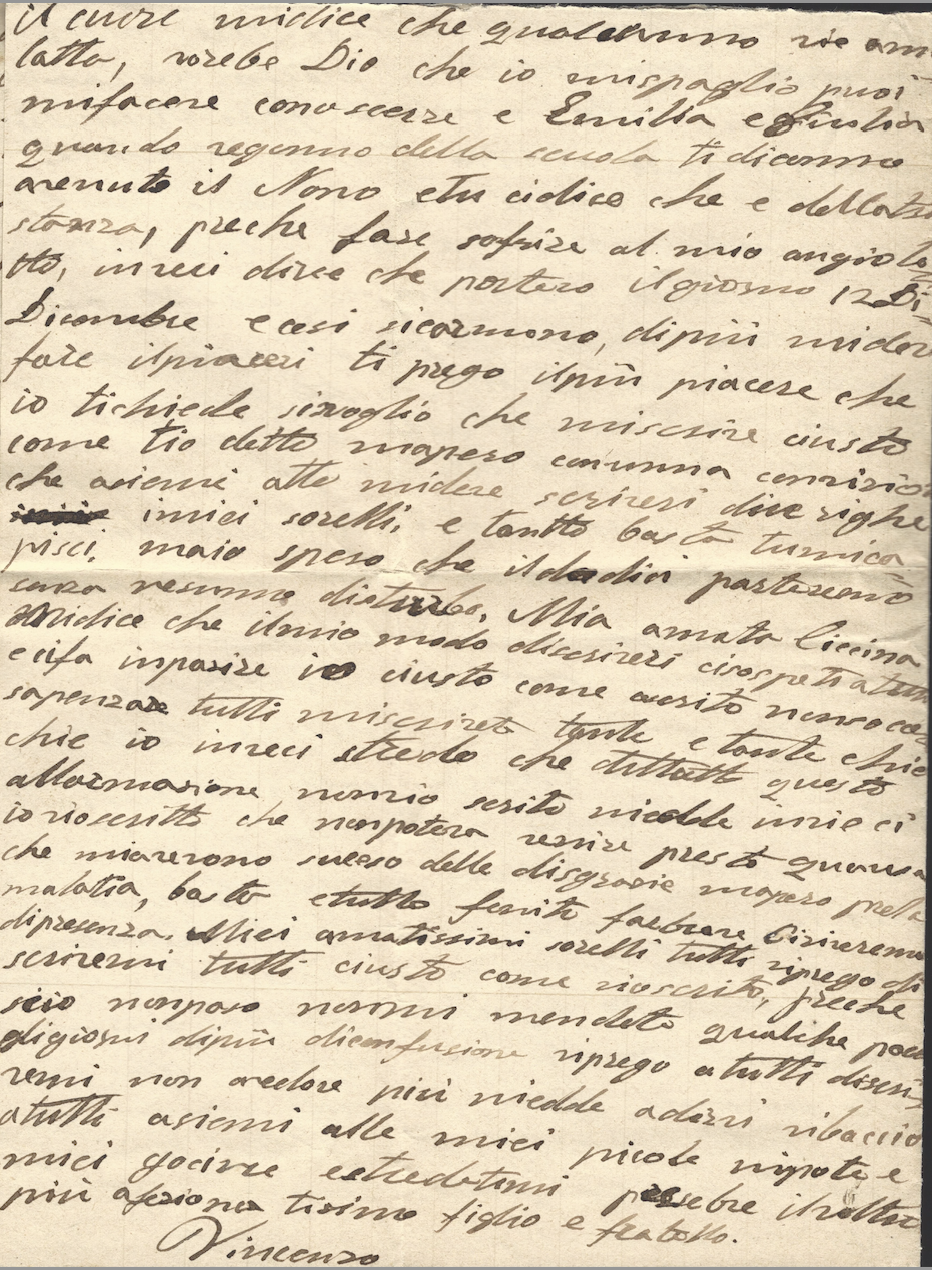 il cuore midice che qualcunno sie am
latto, vorebe Dio che io mispaglio puoi
mifacere conoscerre e Emilia e Giulia
quando vegonno della scuola ti diconno
avenuto il Nono etu cidice che e dellatra
stanza, preche fare sofrire al mio angiolo
tto, inveci dirce che portero ilgiorno 12 Di=
Dicembre ecosi sicarmono, dipiù midevi
fare ilpiaceri ti prego ilpiù piacere che
io tichiede sivoglio che miscrire ciusto
come tio detto mapero conunna
che asiemi atte midere scriveri due righe
imiei sorelli, e tantto basta tumica=
pisci, maio spero che il partiremo
senza nesunno disturbo, Mia amata Ciccina
Midice che ilmio modo discriveri cisospeti atutti
ecifa inparire io ciusto come
sapenzare tutti miscrireto tante e tante chie
chie io inveci stredo che tuttutto questo
allarmazione nonnio scrito niedde inrie ci
io rioscritto che nonpoteva venire presto
che miaverono sucesso delle disgrazie mapero prella
malatia, basta etutto fenito farbrare Ciriveremo
dipresenza. Miei amatissimi sorelli tutti riprego di
scrivermi tutti ciusto come rioscrito, preche
scio nonposo nonmi mendeto qualche poco
gligiorni dipiù diconfusione riprego atutti discri=
vemi non avedore più niedde aderri ribaccio
atutti asiemi alle miei picole nipote e
miei gocirre estredetemi presebre ilvoltro
più afeziona tisimo figlio e fratello.
Vincenzo